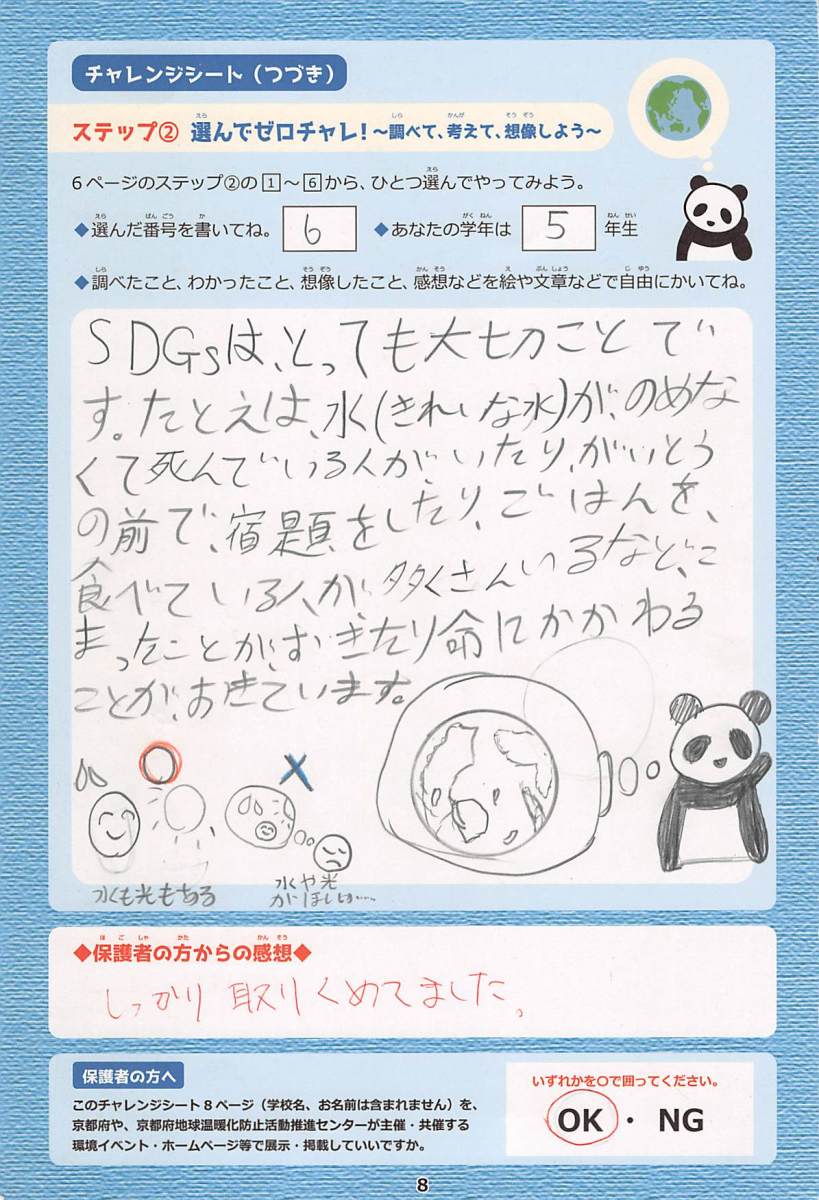 チャレンジシート（つづき）
ステップ② 選んでゼロチャレ！～調べて、考えて、想像しよう～
6ページのステップ②の1～6から、ひとつ選んでやってみよう。
◆選んだ番号を書いてね。 6 ◆あなたの学年は 5 年生
◆調べたこと、わかったこと、想像したこと、感想などを絵や文章などで自由にかいてね。
SDGsは、とっても大切のことで
す。たとえは、水(きれいな水)が、のめな
くて死んでいる人が、いたり、がいとう
の前で、宿題をしたり、ごはんを、
食べている人が、多くさんいるなど、こ
まったことが、おきたり命にかかわる
ことが、おきています。
水も光もある
水や光
がほしい……
◆保護者の方からの感想◆
しっかり取りくめてました。
保護者の方へ
このチャレンジシート8ページ（学校名、お名前は含まれません）を、
京都府や、京都府地球温暖化防止活動推進センターが主催・共催する
環境イベント・ホームページ等で展示・掲載していいですか。
いずれかを○で囲ってください。
OK ・ NG
8